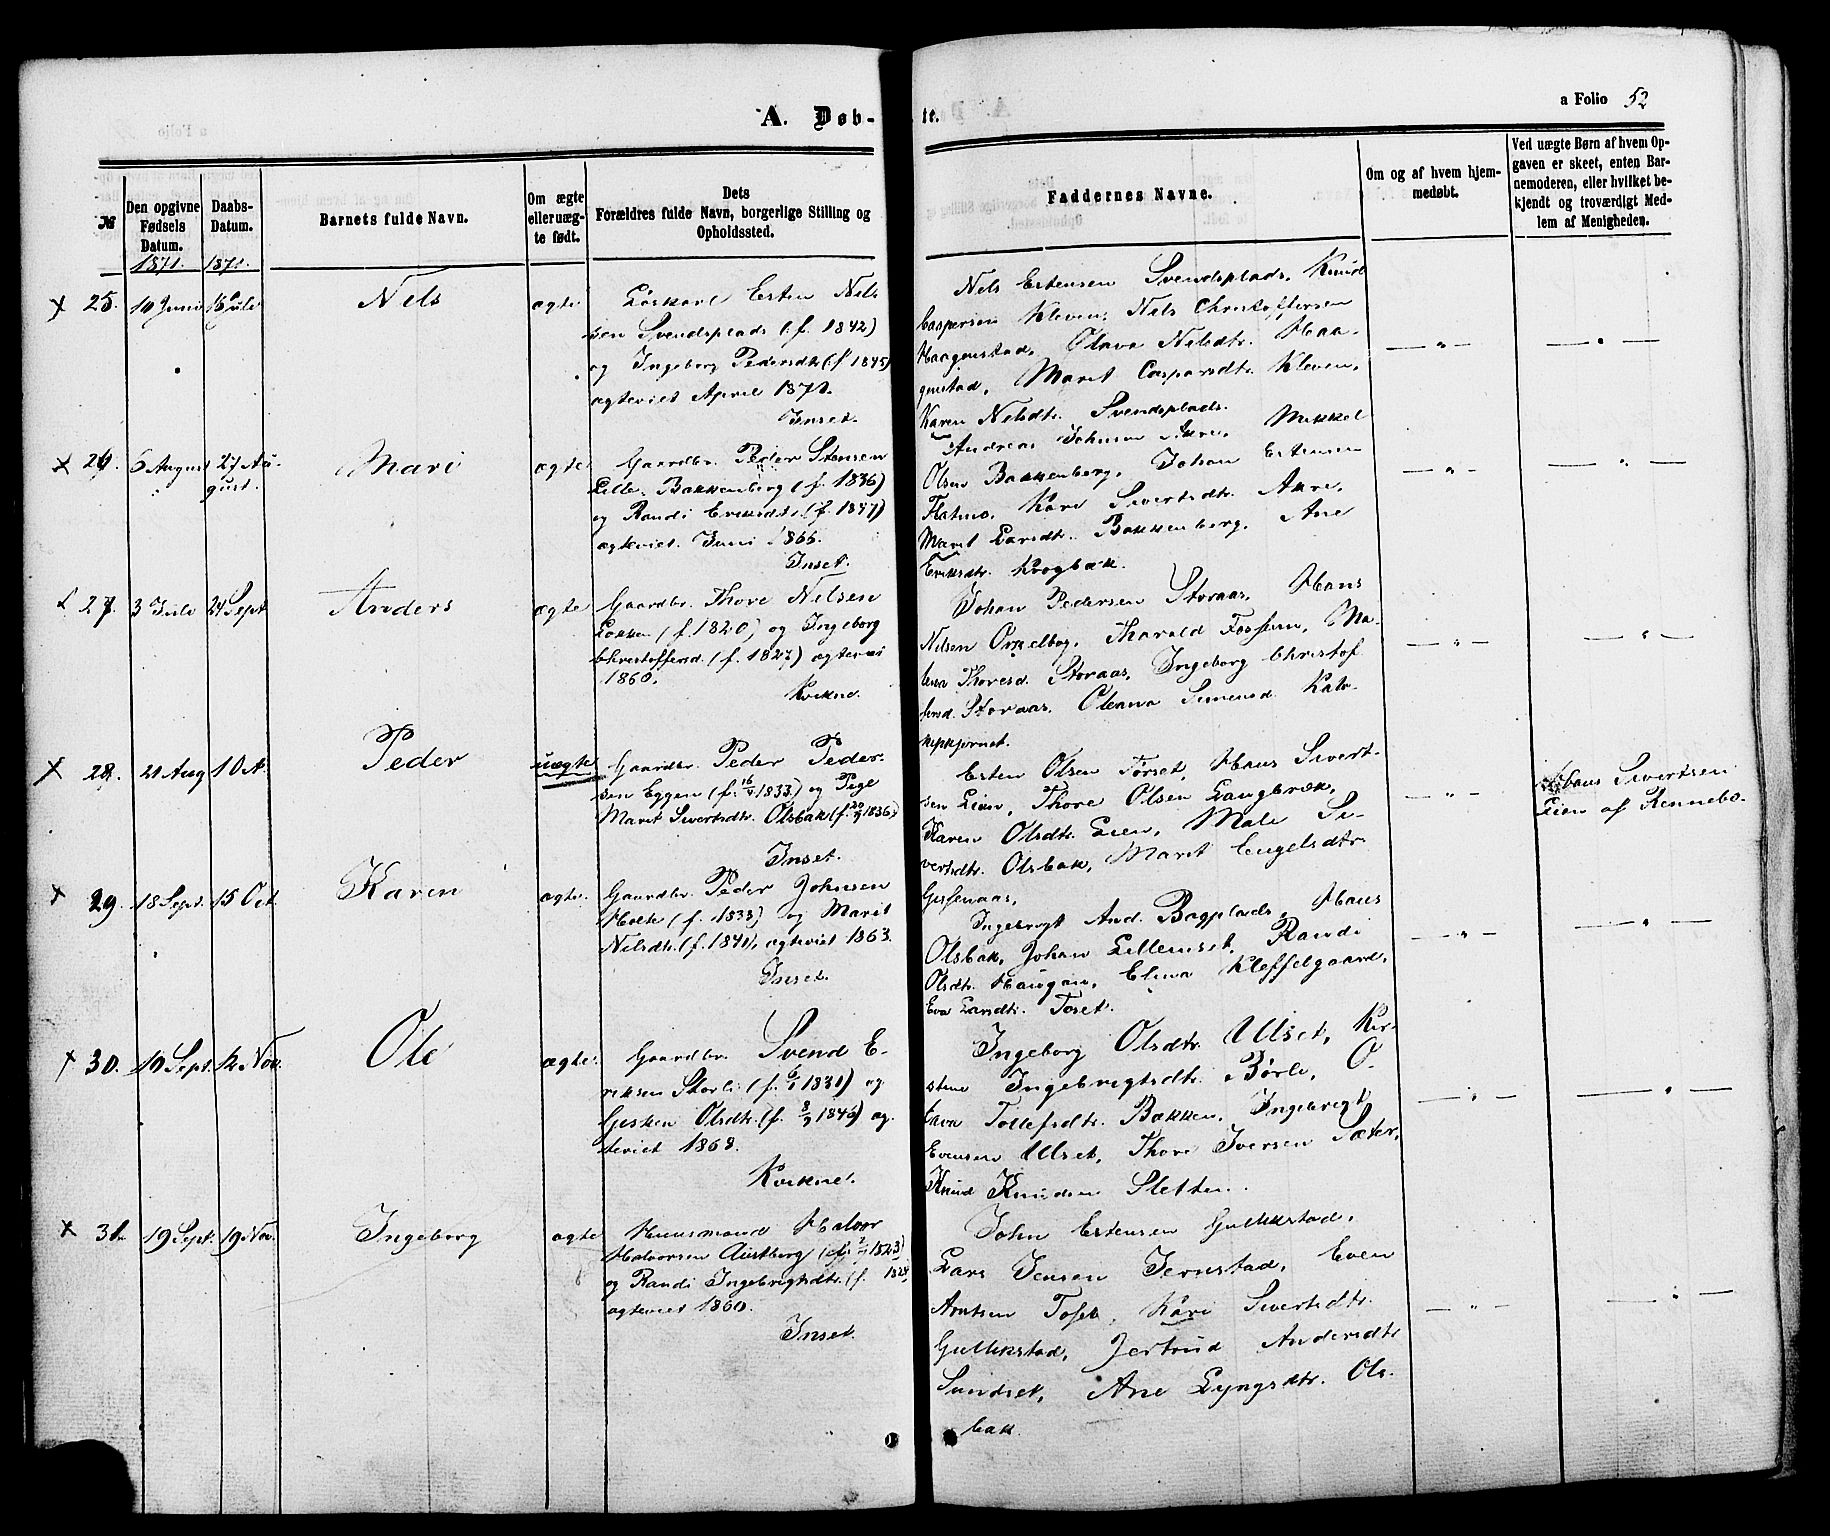 A. Døb-
te.
a Folio 52
№
Den opgivne Fødsels Datum.
1871.
Daabs-Datum.
1871.
Barnets fulde Navn.
Om ægte eller uægte født.
Dets Forældres fulde Navn, borgerlige Stilling og Opholdssted.
Faddernes Navne.
Om og af hvem hjemmedøbt.
Ved uægte Børn af hvem Opgaven er skeet, enten Barnemoderen, eller hvilket bekjendt og troværdigt Medlem af Menigheden.
25. 10 Juni 16 Juli Nels ægte
Løskarl Esten Nels
sen Svendsplads (f. 1842)
og Ingeborg Pedersdtr (f 1845)
ægteviet April 1871.
Inset.
Nels Estensen Svendsplads, Knud
Caspersen Kleven, Nils Christoffersen
Haagenstad, Olava Nilsdtr. Haa-
genstad, Marit Caspersdtr. Kleven,
Karen Nelsdtr. Svendsplads.
26. 6 August 27 Au-
gust. Mari ægte
Gaardbr. Peder Stensen
Lille-Bakkenberg (f. 1836)
og Randi Eriksdtr. (f. 1847)
ægteviet Juni 1866.
Inset.
Andreas Johnsen Akre, Mikkel
Olsen Bakkenberg, Johan Estensen
Flatmo, Kari Sivertsdtr. Akre,
Marit Larsdtr. Bakkenberg, Ane
Eriksdtr. Krogbæk.
27. 3 Juli 24 Sept Anders ægte
Gaardbr. Thore Nilsen
Løkken (f. 1820) og Ingeborg
Christoffersd. (f. 1827) ægtevi
1860.
Kvikne.
Johan Pedersen Storaas, Hans
Nilsen Orkelbog, Tharald Fossum, Ma-
lena Thoresd. Storaas, Ingeborg Christof
fersd. Storaas, Oleana Simensd. Kal-
kkjernet.
28. 21 Aug 10 Peder uægte
Gaardbr. Peder Peder-
sen Eggen (f. 16/4 1833) og Pige
Marit Sivertsdtr. Olsbak (f. 20/9 1836)
Inset.
Esten Olsen Torset, Hans Sivert-
sen Lien, Thore Olsen Langbræk,
Karen Olsdtr. Lien, Mali Si-
vertsdtr. Olsbak, Marit Engelsdtr.
Gisenaas,
Hans Sivertsen
Lien af Rennebo.
29. 18 Sept. 15 Oct Karen ægte.
Gaardbr. Peder Johnsen
Holte (f. 1833) og Marit
Nilsdtr. (f. 1841), ægteviet 1863.
Inset.
Ingebrigt And. Bagplads, Hans
Olsbak, Johan Lilleinset, Randi
Olsdtr. Haugen, Elina Kleffelgaard,
Eva Larsdtr. Toset.
30. 10 Sept. 12 Nov. Ole ægte.
Gaardbr. Svend E-
riksen Storli (f. 6/1 1831) og
Gisken Olsdtr. (f. 8/9 1846) æg-
teviet 1868.
Kvikne.
Ingeborg Olsdtr. Ulset, Kir-
stine Ingebrigtsdtr. Børli, O-
lava Tollefsdtr. Bakken, Ingebrigt
Evensen Ulset, Thore Iversen Sæter,
Knud Knudsen Sletten.
31. 19 Sept. 19 Nov. Ingeborg ægte
Huusmand Halvor
Halvorsen Austberg (f. 1823)
og Randi Ingebrigtsdtr. (f. 1828)
ægteviet 1860.
Inset.
John Estensen Gullikstad,
Lars Jensen Jernstad, Even
Arntsen Toset, Kari Sivertsdtr.
Gullikstad, Jertrud Andersdtr
Sundset, Ane Lyngsdtr. Ols-
bak.